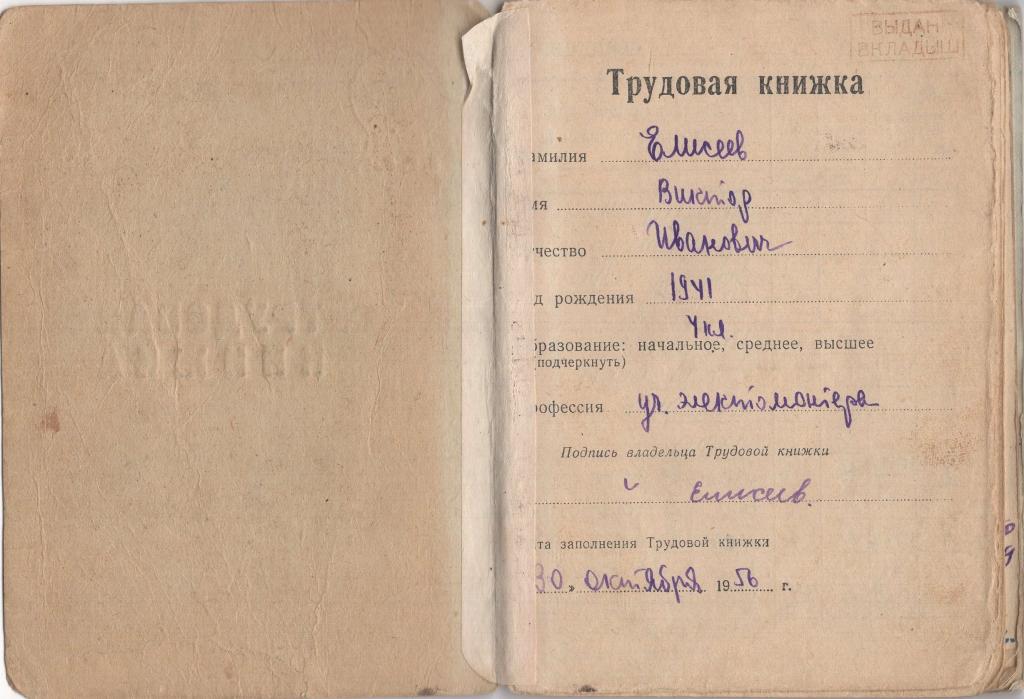 ВЫДАН
ВКЛАДЫШ
Трудовая книжка
амилия Елисеев
мя Виктор
чество Иванович
д рождения 1941
4 кл.
бразование: начальное, среднее, высшее
(подчеркнуть)
рофессия уч. электомонтера
Подпись владельца Трудовой книжки
Елисеев.
та заполнения Трудовой книжки
30 » октября 1956 г.